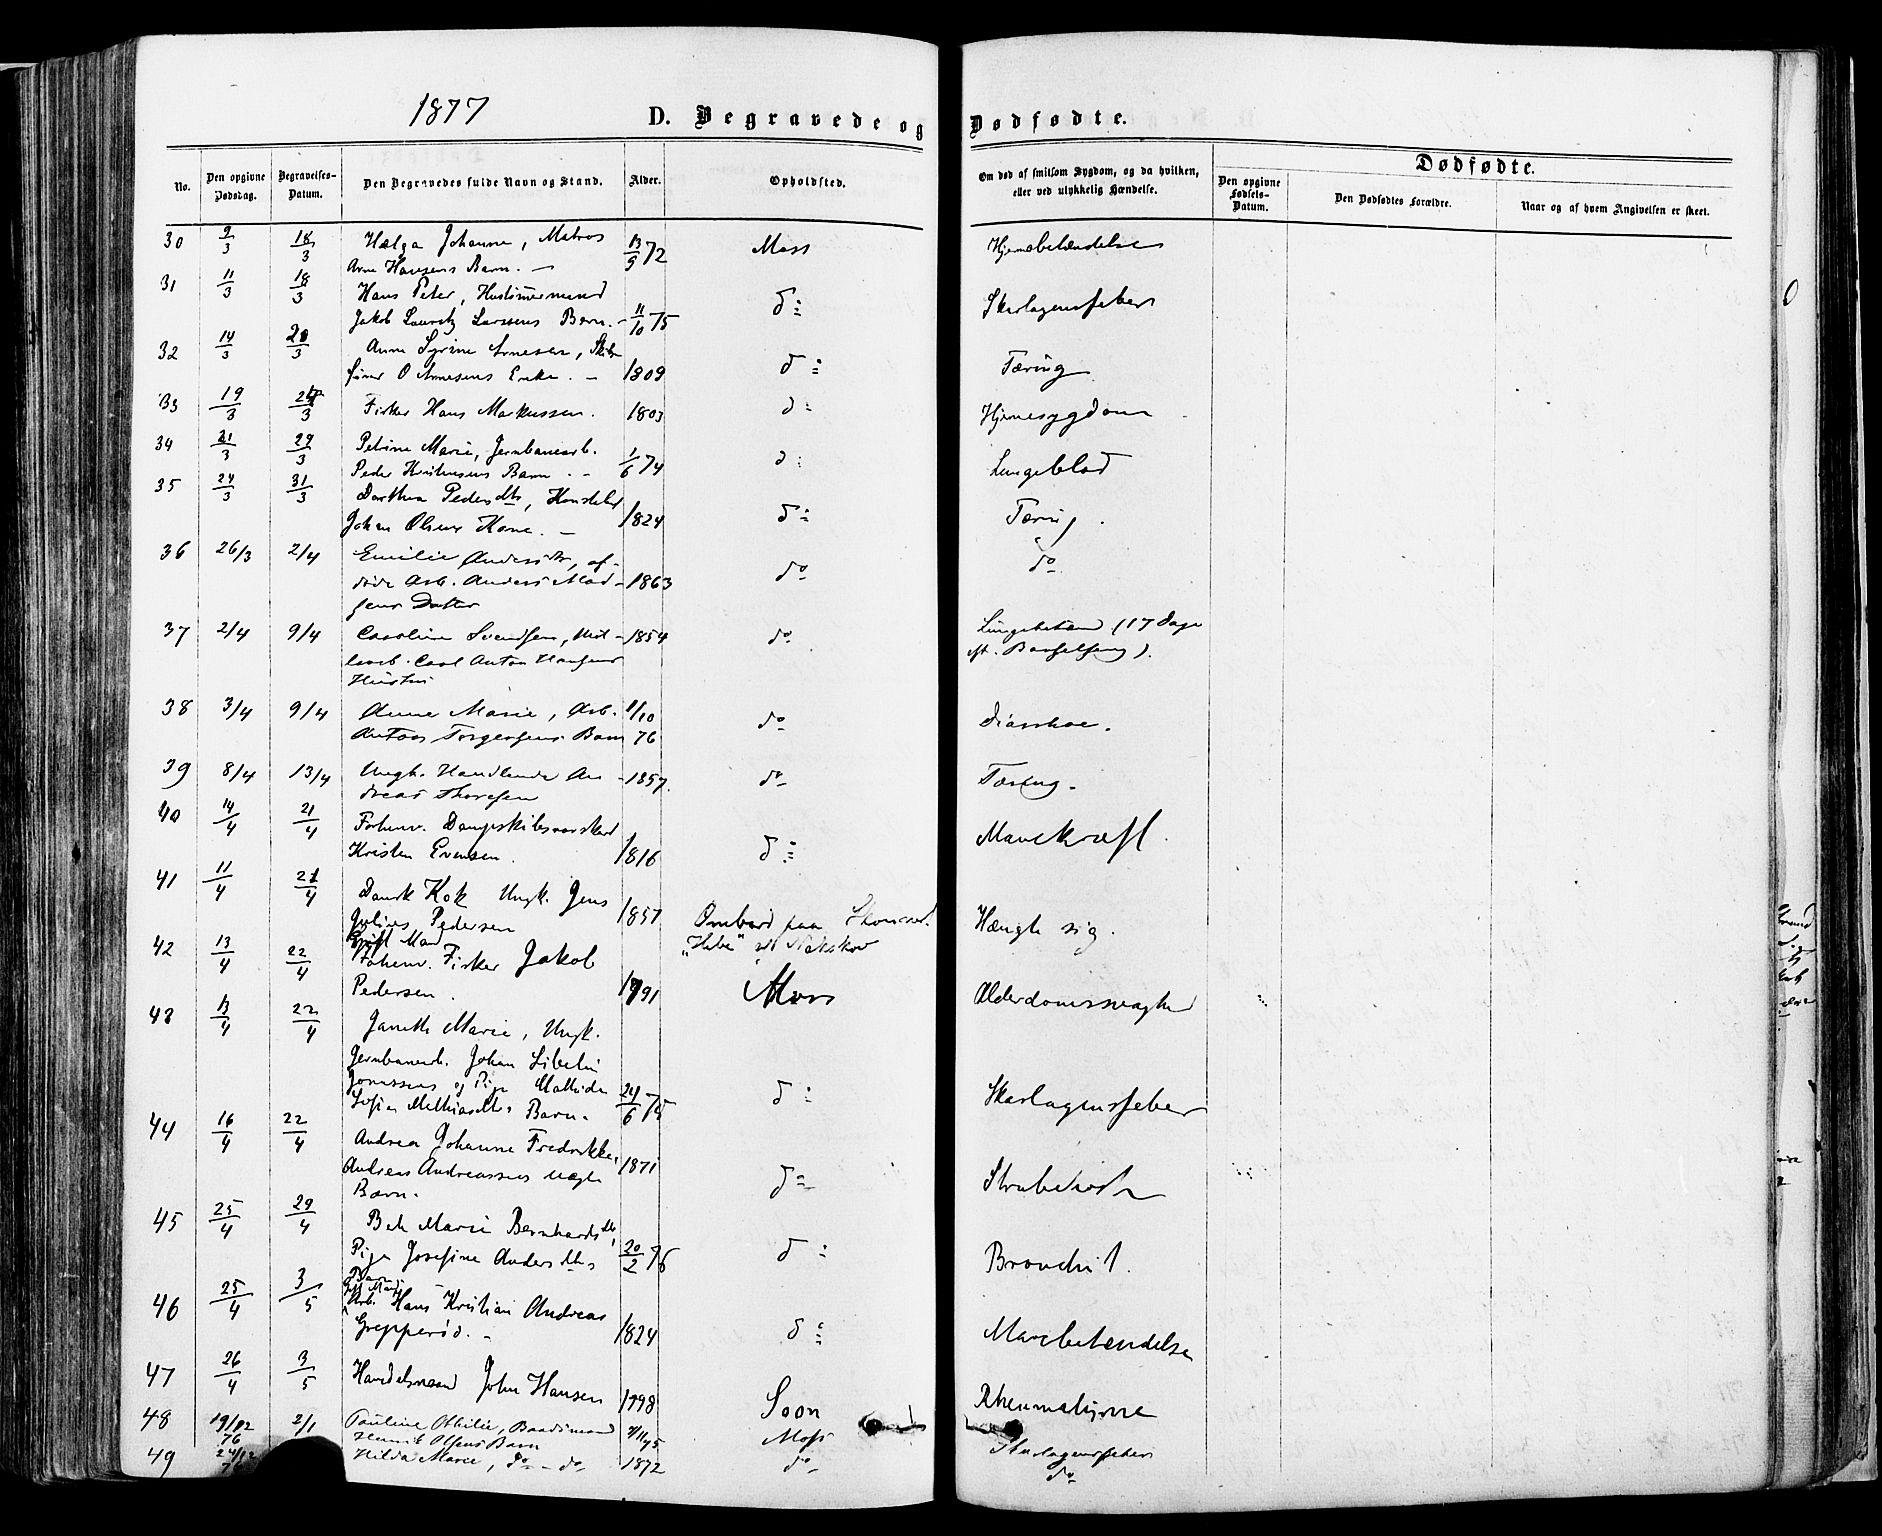 1877
D. Begravede og Dødfødte.
No. Den opgivne Dødsdag. Begravelses-Datum. Den Begravedes fulde Navn og Stand. Alder. Opholdsted. Om død af smitsom Sygdom, og da hvilken, eller ved ulykkelig Hændelse. Dødfødte.
Den opgivne Fødsels-Datum. Den Dødfødtes Forældre. Naar og af hvem Angivelsen er skeet.
30 9/3 18/3 Hælga Johanne, Matros Moss Hjernebetændelse
Arne Hansens Barn. — 13/9 72
31 11/3 18/3 Hans Peter, Hustømmermand d: Skarlagensfeber
Jakob Lauritz Larssens Barn. - 11/10 75
32 14/3 20/3 Anne Syrine Arnesen, Skibs
fører O Arnesens Enke. — 1809 d: Tæring
33 19/3 3 Fisker Hans Markussen. 1803 d: Hjernesygdom
34 21/3 29/3 Petrine Marie, Jernbanearb.
Peder Kristensens Barn. - 1/6 74 d: Lungeblod
35 24/3 31/3 Dorthea Pedersdtr,
Johan Olsens Kone. — 1824 d: Tæring.
36 26/3 2/4 Emilie Andersdtr, af-
døde Arb. Anders Mad- 1863 do do
sens Datter
37 2/4 9/4 Caroline Svendsen, 1854 do (17 Dage
Carl Anton Hansens eft. Barselseng).
Hustru
38 3/4 9/4 Anne Marie, Arb. /10 do Diarrhoe.
Anton Torgersens Barn 76
39 8/4 13/4 Ungk. Handlende An- 1857. do Tæring.
dreas Thoresen
40 14/4 21/4 Forhenv.
Kristen Evensen. 1816 d: Mavekræft.
41 11/4 21/4 Dansk Kok Ungk. Jens
Julius Pedersen 1857 Ombord paa Hængte sig.
Gift Mand "Hebe" Nakskov
42 13/4 22/4 Forhenv. Fisker Jakob
Pedersen. 1791 Moss Alderdomssvaghed
43 13/4 22/4 Marie, Ungk.
Jernbanearb. Johan
og Pige Mathilde
Sofie Barn. 24/6 75 d: Skarlagensfeber
44 16/4 22/4 Andrea Johanne Fredrikke,
Andreas Andreassens ægte 1871 d: Strubehoste
Barn.
45 25/4 29/4 Marie Bernhardsdtr,
Pige Josefine Andersdtrs 20/2 76 d: Bronchit.
Barn
46 25/4 3/5 Arb. Hans Kristian Andreas
Grepperød. - 1824 d: Mavebetændelse
47 26/4 3/5 Handelsmand John Hansen 1798 Soon
48 19/12 76 2/1 Pauline Othilie, Moss Skarlagensfeber
Henrik Olsens Barn
49 24/12 Hilda Marie, do - do 1872 do do